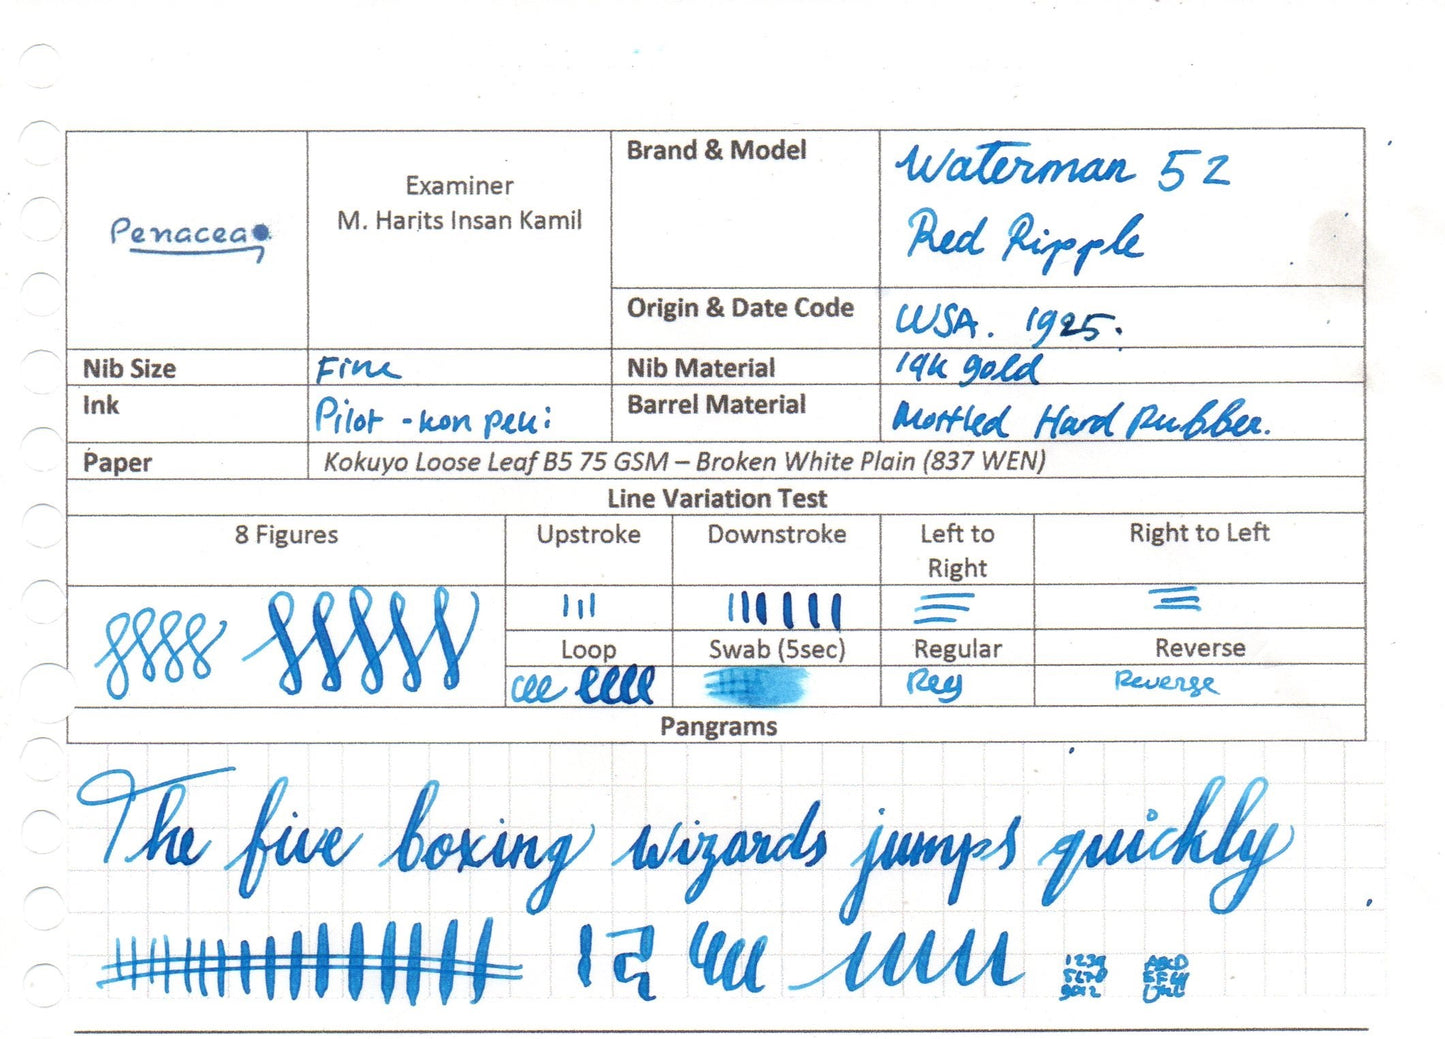 Penacea
Examiner
M. Harits Insan Kamil
Brand & Model
Waterman 52
Red Ripple
Origin & Date Code
USA. 1925.
Nib Size
Fine
Nib Material
14k gold
Ink
Pilot - kon peki
Barrel Material
Mottled Hard Rubber.
Paper
Kokuyo Loose Leaf B5 75 GSM – Broken White Plain (837 WEN)
Line Variation Test
8 Figures
Upstroke
Downstroke
Left to
Right
Right to Left
Loop
Swab (5sec)
Regular
Reverse
Reg
Reverse
Pangrams
The five boxing wizards jumps quickly
1234
ABCD